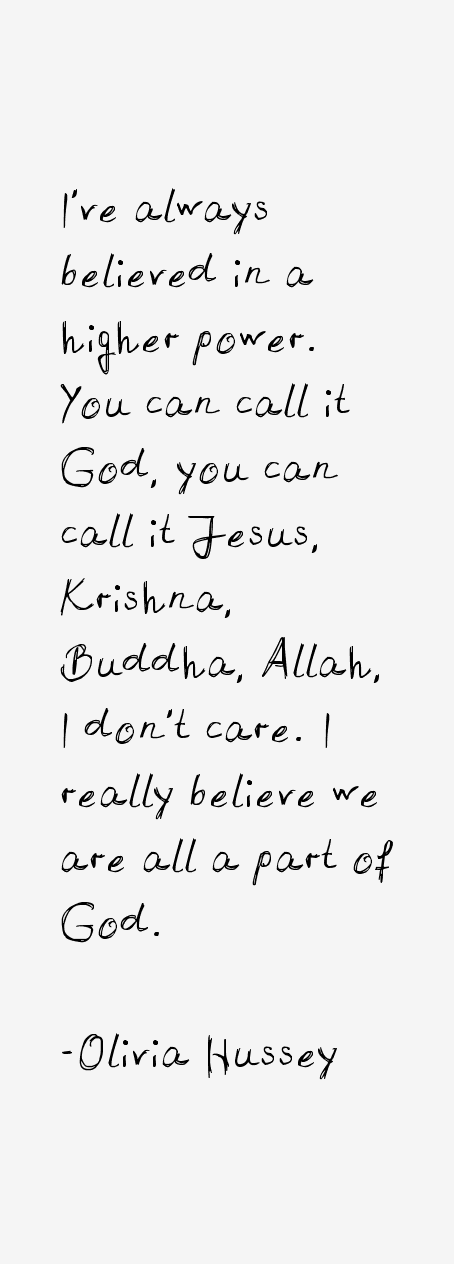 I've always
believed in a
higher power.
You can call it
God, you can
call it Jesus,
Krishna,
Buddha, Allah,
I don't care. I
really believe we
are all a part of
God.
-Olivia Hussey